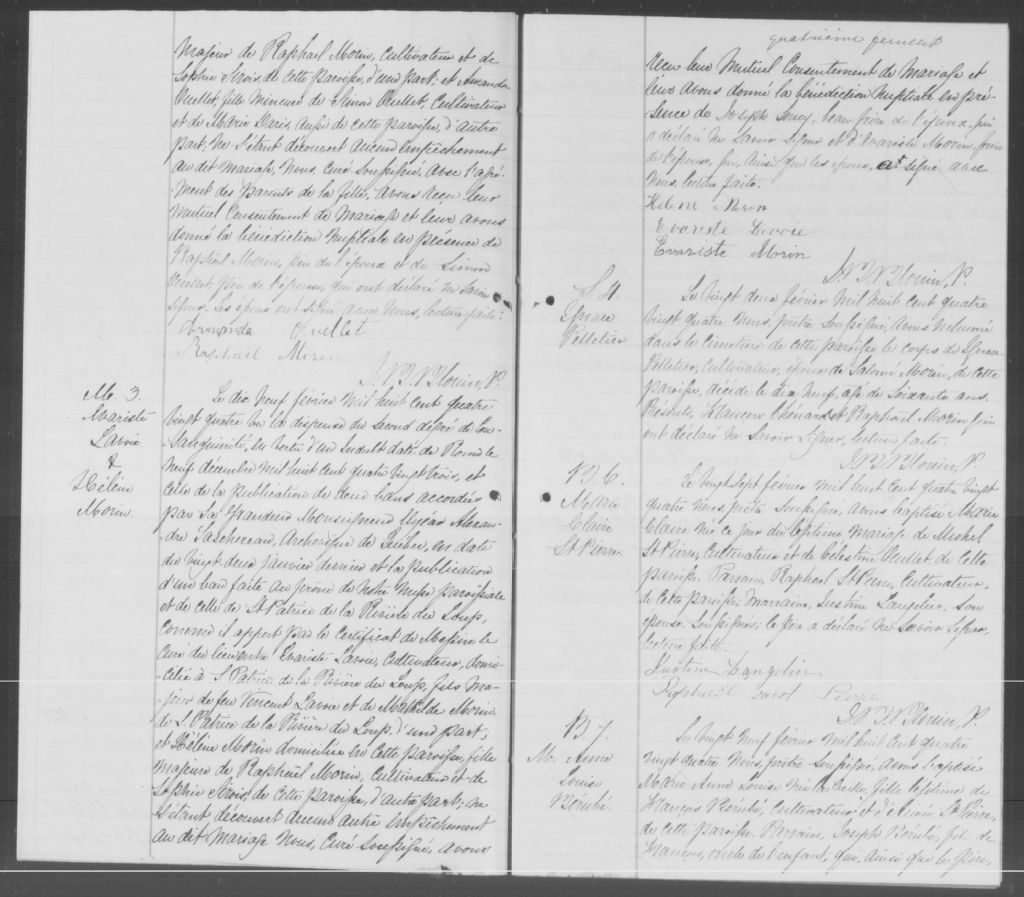 Majeur de Raphaël Morin, Cultivateur et de
Sophie Sirois de cette paroisse, d'une part; et Amanda
Ouellet, fille mineure de Simon Ouellet, Cultivateur
et de Marie Paris, aussi de cette paroisse, d'autre
part; ne s'étant découvert aucun empêchement
au dit mariage, Nous, Curé soussigné, avec l'agré-
-ment des parents de la fille, avons reçu leur
mutuel Consentement de mariage et leur avons
donné la bénédiction nuptiale en présence de
Raphaël Morin, père de l'époux et de Simon
Ouellet, père de l'épouse, qui ont déclaré ne savoir
signer. Les époux ont signé avec Nous, lecture faite.
Armanda Ouellet
Raphaël Morin
M. 3.
Evariste
Lavoie
&
Hélène
Morin.
Le dix neuf février mil huit cent quatre
vingt quatre vu la dispense du second degré de Con-
-sanguinité, en vertu d'un Indult daté de Rome le
neuf décembre mil huit cent quatre vingt trois, et
celle de la publication de deux bans accordées
par Sa Grandeur Monseigneur Elzéar Alexan-
-dre Taschereau, Archevêque de Québec, en date
du vingt deux janvier dernier et la publication
d'un ban faite au prône de notre Messe paroissiale
et de celle de St Patrice de la Rivière du Loup,
comme il appert par le certificat de Messire le
Curé du lieu, entre Evariste Lavoie, Cultivateur, domi-
-cilié à S. Patrice de la Rivière du Loup, fils ma-
-jeur de feu Vincent Lavoie et de Mathilde Morin,
de S. Patrice de la Rivière du Loup, d'une part,
et Hélène Morin domiciliée en cette paroisse, fille
majeure de Raphaël Morin, Cultivateur et de
Sophie Sirois, de cette paroisse, d'autre part; ne
s'étant découvert aucun autre empêchement
au dit mariage Nous, Curé soussigné, avons
quatrième feuillet
reçu leur mutuel Consentement de mariage et
leur avons donné la bénédiction nuptiale en pré-
-sence de Joseph Soucy, beau frère de l'époux, qui
a déclaré ne savoir signer et d'Evariste Morin, frère
de l'épouse, qui, ainsi que les époux, a signé avec
Nous, lecture faite.
Helene Morin
Evariste Lavoie
Evariste Morin
S. 4.
Ignace
Pelletier
Le vingt deux février mil huit cent quatre
vingt quatre Nous, prêtre soussigné, avons inhumé
dans le cimetière de cette paroisse le corps de Ignace
Pelletier, Cultivateur, époux de Salomé Morin, de cette
paroisse, décédé le dix neuf, âgé de soixante ans.
Présents, François Chénard et Raphaël Morin qui
ont déclaré ne savoir signer, lecture faite.
B. 6.
Marie
Claire
St Pierre.
Le vingt sept février mil huit cent quatre vingt
quatre Nous, prêtre soussigné, avons baptisé Marie
Claire née ce jour du légitime mariage de Michel
St Pierre, Cultivateur et de Célestine Ouellet de cette
paroisse. Parrain, Raphaël St Pierre, Cultivateur,
de cette paroisse, Marraine, Justine Langelier, son
épouse, soussignés; le père a déclaré ne savoir signer,
lecture faite.
Justine Langelier
Raphaël Saint Pierre
B. 7.
M. Anne
Louise
Bérubé.
Le vingt neuf février mil huit cent quatre
vingt quatre Nous, prêtre soussigné, avons baptisé
Marie Anne Louise née la veille, fille légitime de
François Bérubé, Cultivateur, et d' St Pierre,
de cette paroisse. Parrain, Joseph Bérubé, fils de
François, oncle de l'enfant, qui, ainsi que le père,